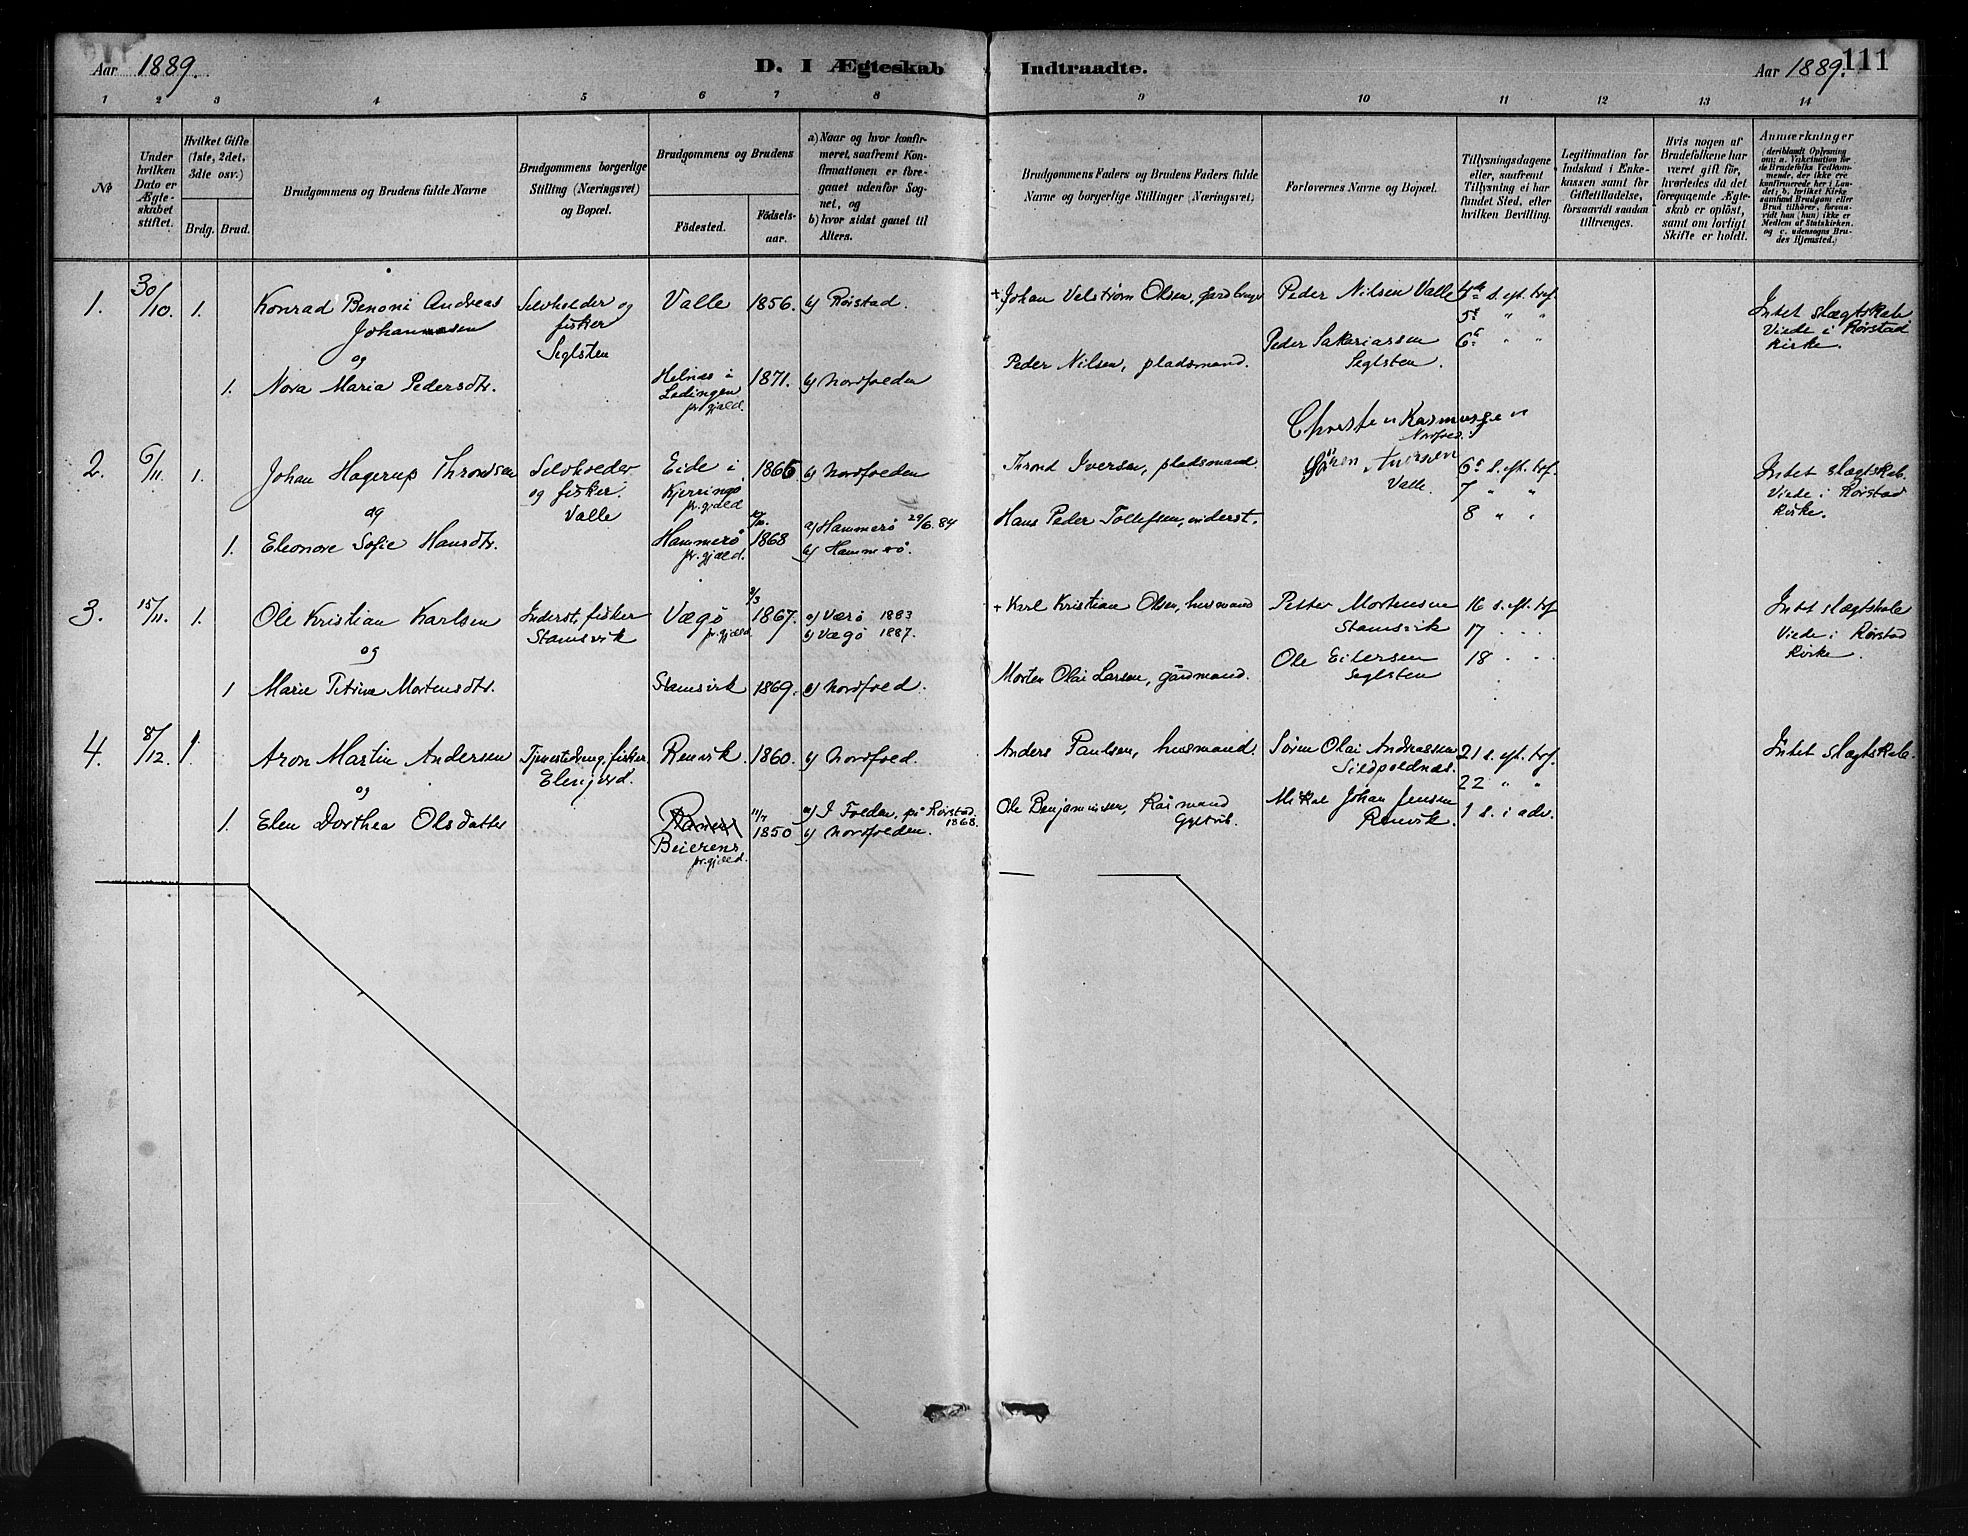 Aar 1889.
D. I Ægteskab Indtraadte.
Aar 1889.
111
1 2 3 4 5 6 7 8 9 10 11 12 13 14
No
Under hvilken Dato er Ægteskabet stiftet.
Hvilket Gifte (1ste, 2det, 3die osv.)
Brdg. Brud.
Brudgommens og Brudens fulde Navne
Brudgommens borgerlige Stilling (Næringsvei) og Bopæl.
Brudgommens og Brudens
Födested.
Födsels-aar.
a) Naar og hvor konfirmeret, saafremt Konfirmationen er foregaaet udenfor Sognet, og
b) hvor sidst gaaet til Alters.
Brudgommens Faders og Brudens Faders fulde Navne og borgerlige Stillinger (Næringsvei)
Forlovernes Navne og Bopæl.
Tillysningsdagene eller, saafremt Tillysning ei har fundet Sted, efter hvilken Bevilling.
Legitimation for Indskud i Enkekassen samt for Giftetilladelse, forsaavidt saadan tiltrænges.
Hvis nogen af Brudefolkene har været gift før, hvorledes da det foregaaende Ægteskab er oplöst, samt om lovligt Skifte er holdt.
Anmærkninger
(deriblandt Oplysning om: a. Vakcination for de Brudefolks Vedkommende, der ikke ere konfirmerede her i Landet; b. hvilket Kirkesamfund Brudgom eller Brud tilhører, forsaavidt han (hun) ikke er Medlem af Statskirken, og c. udensogns Brudes Hjemsted.)
1. 30/10. 1. Konrad Benoni Andreas Johannesen
og
1. Nora Maria Pedersdtr.
Selvholder og fisker
Seglsten
Valle 1856. b) Rørstad.
Helnæs i Lødingen pr.gjæld. 1871. b) Nordfolden
+ Johan Velstrøm Olsen, gårdbruger
Peder Nilsen, pladsmand.
Peder Nilsen Valle
Peder Sakariassen
Seglsten.
4de s. eft. tref.
5te " "
6te " "
Intet slægtskab
Viede i Rørstad
Kirke.
2. 6/11. 1. Johan Hagerup Throndsen
og
1. Eleonore Sofie Hansdtr.
Selvholder og fisker.
Valle
Eide i Kjerringø pr.gjæld 1865 b) Nordfolden
Hammerø pr.gjæld. 1868 a) Hammerø 29/6.84
b) Hammerø.
Thrond Iversen, pladsmand
Hans Peder Tollefsen, inderst.
Christen Rasmussen
Nordfold.
Søren Andersen
Valle.
6te s. eft. tref.
7 " "
8 " "
Intet slægtskab.
Viede i Rørstad
Kirke.
3. 15/11. 1. Ole Kristian Karlsen
og
1 Marie Petrine Mortensdtr.
Inderst, fisker
Stamsvik
Vægø pr.gjæld 9/3 1867. a) Værø 1883
b) Vægø 1887.
Stamsvik 1869. b) Nordfold.
+ Karl Kristian Olsen, husmand
Morten Olai Larsen, gårdmand.
Petter Mortensen
Stamsvik
Ole Eilersen
Seglsten
16 s. eft. tref
17 . . .
18 . . .
Intet slægtskab
Viede i Rørstad
Kirke.
4. 8/12. 1. Aron Martin Andersen
og
1. Elen Dorthea Olsdatter
Tjenestedreng, fisker
Elvgård.
Renvik 1860. b) Nordfold.
Beierens pr.gjæld. 11/7 1850 a) I Folden, på Rørstad 1868.
b) Nordfolden.
Anders Paulsen, husmand
Ole Benjaminsen, Råsmand
Søren Olai Andreassen
Sildpoldnæs.
Mikal Johan Jensen
Renvik.
21 s. eft. tref.
22 " "
1 s. i adv.
Intet slægtskab.